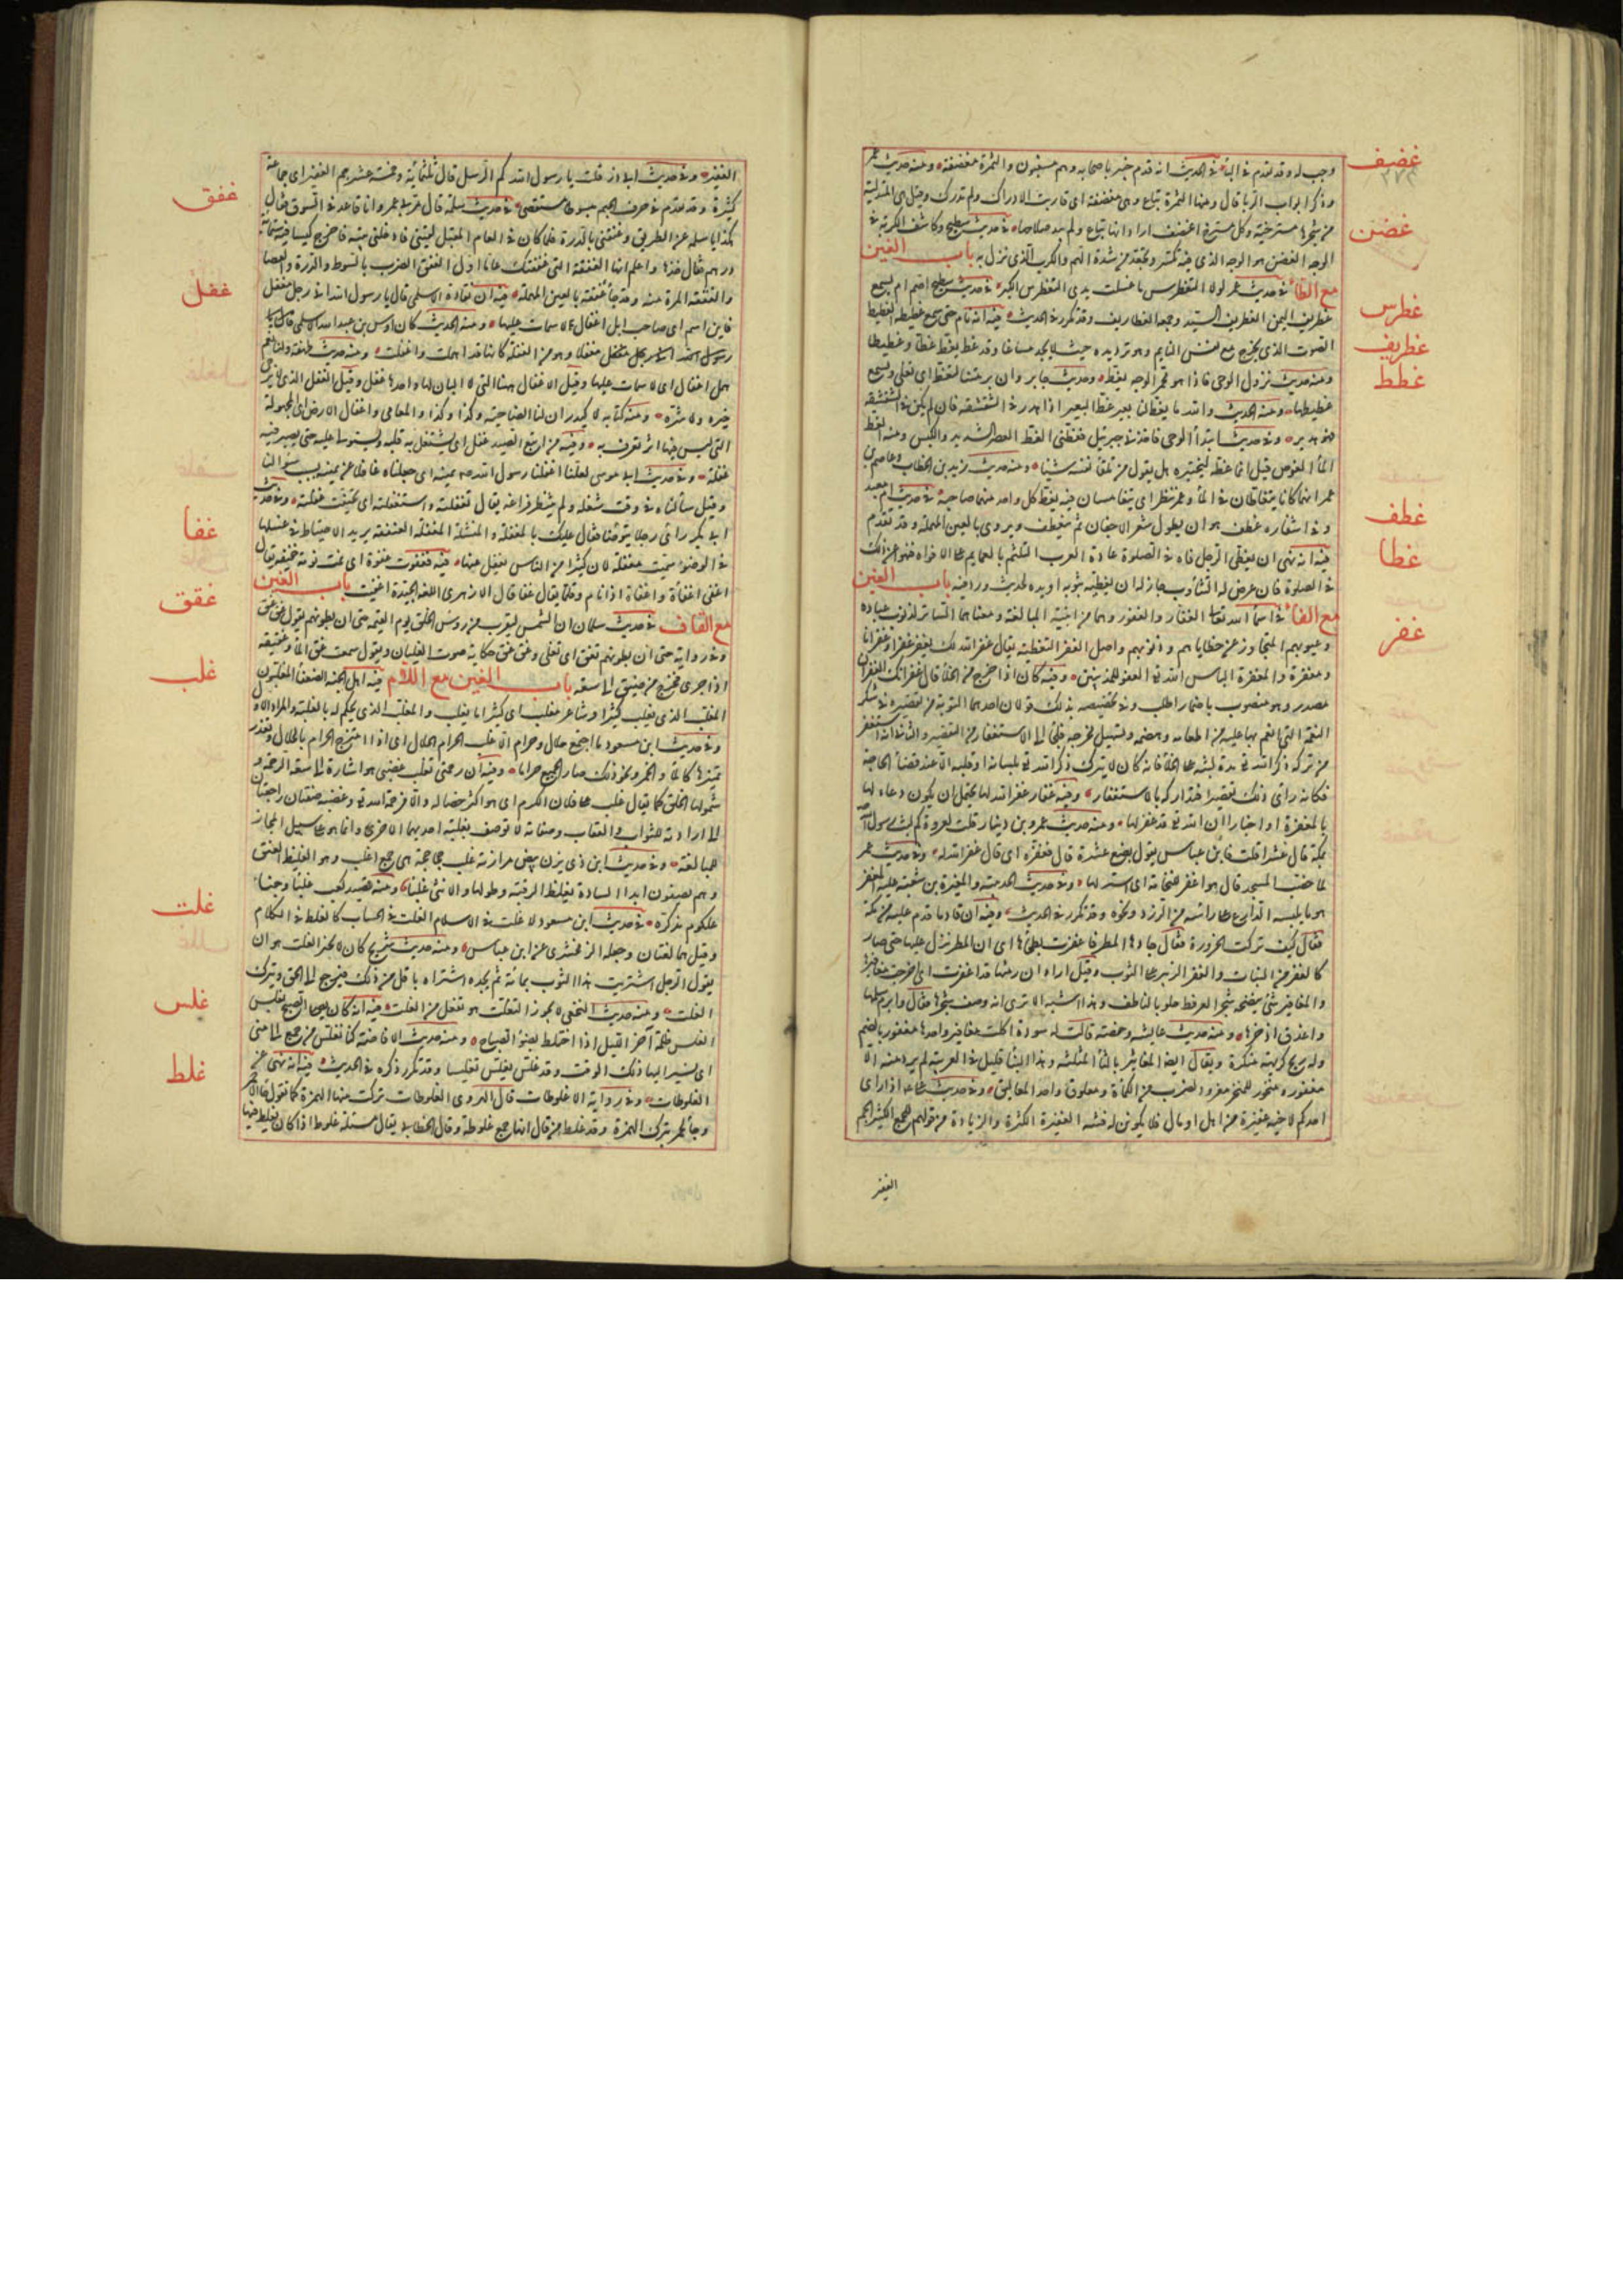 غضيف
وجب له وقد تقدم في الباء في الحديث انه قدم خيبر باصحابه وهم مسغبون والثمرة مغضفة ومنه حديث عمر
وذكر ابواب الربا قال ومنها الثمرة تباع وهي مغضفة اي قاربت الادراك ولم تدرك وقيل هي المتدلية
غضن
من شجرها مسترخية وكل مسترخ اغضف اراد انها تباع ولم يبد صلاحها في حديث سطيح وكاشف الكربة في
الوجه الغضن هو الوجه الذي فيه تكسر وتجعد من شدة الهم والكرب الذي نزل به باب الغين
غطرس
مع الطاء في حديث عمر لولا التغطرس ما غسلت يدي التغطرس الكبر في حديث سطيح اصم ام يسمع
غطريف
غطريف اليمن الغطريف السيد وجمعه الغطاريف وقد تكرر في الحديث فيه انه نام حتى سمع غطيطه الغطيط
غطط
الصوت الذي يخرج مع نفس النايم وهو ترديده حيث لا يجد مساغا وقد غط يغط غطا وغطيطا
ومنه حديث نزول الوحي فاذا هو محمر الوجه يغط وحديث جابر وان برمتنا لتغط اي تغلي ويسمع
غطيطها ومنه الحديث والله ما يغط لنا بعير غط البعير اذا هدر في الشقشقة فان لم يكن في الشقشقة
فهو هدير وفي حديث ابتداء الوحي فاخذني جبرئيل فغطني الغط العصر الشديد والكبس ومنه الغط في
الماء الغوص قيل انما غطه ليختبره هل يقول من تلقاء نفسه شيئا ومنه حديث زيد بن الخطاب وعاصم بن
عمر انهما كانا يتغاطان في الماء وعمر ينظر اي يتغامسان فيه يغط كل واحد منهما صاحبه في حديث ام معبد
غطف
وفي اشفاره غطف هو ان يطول شعر الاجفان ثم ينعطف ويروى بالعين المهملة وقد تقدم
غطا
فيه انه نهى ان يغطي الرجل فاه في الصلوة عادة العرب التلثم بالعمايم على الافواه فنهوا عن ذلك
في الصلوة فان عرض له التثاوب جاز له ان يغطيه بثوبه او يده لحديث ورد فيه باب الغين
غفر
مع الفاء في اسماء الله تعالى الغفار والغفور وهما من ابنية المبالغة ومعناهما الساتر لذنوب عباده
وعيوبهم المتجاوز عن خطاياهم وذنوبهم واصل الغفر التغطية يقال غفر الله لك يغفر غفرا وغفرانا
ومغفرة والمغفرة الباس الله تعالى العفو للمذنبين وفيه كان اذا خرج من الخلاء قال غفرانك الغفران
مصدر وهو منصوب باضمار اطلب وفي تخصيصه بذلك قولان احدهما التوبة من تقصيره في شكر
النعمة التي انعم بها عليه من اطعامه وهضمه وتسهيل مخرجه فلجأ الى الاستغفار من التقصير والثاني انه استغفر
من تركه ذكر الله تعالى مدة لبثه على الخلاء فانه كان لا يترك ذكر الله تعالى بلسانه او قلبه الا عند قضاء الحاجة
فكانه راى ذلك تقصيرا فتداركه بالاستغفار وفيه غفار غفر الله لها يحتمل ان يكون دعاء لها
بالمغفرة او اخبارا ان الله تعالى قد غفر لها ومنه حديث عمرو بن دينار قلت لعروة كم لبث رسول الله
بمكة قال عشرا قلت فابن عباس يقول بضع عشرة قال فغفره اي قال غفر الله له وفي حديث عمر
لما حصب المسجد قال هو اغفر للنخامة اي استر لها وفي حديث الحديبية والمغيرة بن شعبة عليه المغفر
هو ما يلبسه الدارع على راسه من الزرد ونحوه وقد تكرر في الحديث وفيه ان قادما قدم عليه من مكة
فقال كيف تركت الحزورة فقال جادها المطر فاغفرت بطحاؤها اي ان المطر نزل عليها حتى صار
كالغفر من النبات والغفر الزئبر على الثوب وقيل اراد ان رمثها قد اغفرت اي اخرجت مغافيرها
والمغافير شئ ينضحه شجر العرفط حلو كالناطف وهذا اشبه الا ترى انه وصف شجرها فقال وابرم سلمها
واعذق اذخرها ومنه حديث عايشة وحفصة قالت له سودة اكلت مغافير واحدها مغفور بالضم
وله ريح كريهة منكرة ويقال ايضا المغاثير بالثاء المثلثة وهذا البناء قليل في العربية لم يرد منه الا
مغفور ومنخور للمنخر ومغرود لضرب من الكمأة ومعلوق واحد المعاليق وفي حديث علي اذا راى
احدكم لاخيه غفيرة من اهل او مال فلا يكونن له فتنة الغفيرة الكثرة والزيادة من قولهم للجمع الكثير الجم
الغفير
الغفير وفي حديث ابي ذر قلت يا رسول الله كم الرسل قال ثلثماية وخمسة عشر جم الغفير اي جماعة
غفق
كثيرة وقد تقدم في حرف الجيم مبسوطا مستقصى في حديث سلمة قال مر بي عمر وانا قاعد في السوق فقال
هكذا يا سلمة عن الطريق وغفقني بالدرة فلما كان في العام المقبل لقيني فادخلني بيته فاخرج كيسا فيه ستماية
درهم فقال خذها واعلم انها الغفقة التي غفقتك عاما اول الغفق الضرب بالسوط والدرة والعصا
غفل
والغفقة المرة منه وقد جاء عفقة بالعين المهملة فيه ان نقادة الاسلمي قال يا رسول الله اني رجل مغفل
فاين اسم اي صاحب ابل اغفال لا سمات عليها ومنه الحديث وكان اوس بن عبد الله الاسلمي
رسول الله مغفلا وهو من الغفلة كانها قد اهملت واغفلت ومنه حديث طهفة ولنا نعم
همل اغفال اي لا سمات عليها وقيل الاغفال ههنا التي لا البان لها واحدها غفل وقيل الغفل الذي لا يرجى
خيره ولا شره ومنه كتابه لاكيدر ان لنا الضاحية وكذا وكذا والمعامي واغفال الارض اي المجهولة
التي ليس فيها اثر تعرف به وفيه من اتبع الصيد غفل اي يشتغل به قلبه ويستولي عليه حتى يصير فيه
غفلة وفي حديث ابي موسى لعلنا اغفلنا رسول الله صلعم يمينه اي جعلناه غافلا عن يمينه بسبب سؤالنا
وقيل سألناه في وقت شغله ولم ننتظر فراغه يقال تغفلته واستغفلته اي تحينت غفلته وفي حديث
غفا
ابي بكر راى رجلا يتوضا فقال عليك بالمغفلة والمنشلة المغفلة العنفقة يريد الاحتياط في غسلها
في الوضوء سميت مغفلة لان كثيرا من الناس يغفل عنها فيه فغفوت غفوة اي نمت نومة خفيفة يقال
غقق
اغفى اغفاء واغفاءة اذا نام وقلما يقال غفا قال الازهري اللغة الجيدة اغفيت باب الغين
مع القاف في حديث سلمان ان الشمس لتقرب من رؤس الخلق يوم القيمة حتى ان بطونهم تقول غق غق
وفي رواية حتى ان بطونهم تغق اي تغلي وغق غق حكاية صوت الغليان ويقول سمعت غق الماء وغقيقه
غلب
اذا جرى فخرج من ضيق الى سعة باب الغين مع اللام فيه اهل الجنة الضعفاء المغلبون
المغلب الذي يغلب كثيرا وشاعر مغلب اي كثيرا ما يغلب والمغلب الذي يحكم له بالغلبة والمراد الاول
وفي حديث ابن مسعود ما اجتمع حلال وحرام الا غلب الحرام الحلال اي اذا امتزج الحرام بالحلال وتعذر
تميزهما كالماء والخمر ونحو ذلك صار الجميع حراما وفيه ان رحمتي تغلب غضبي هو اشارة الى سعة الرحمة و
شمولها الخلق كما يقال غلب على فلان الكرم اي هو اكثر خصاله والا فرحمة الله تعالى وغضبه صفتان راجعتان
الى ارادته للثواب والعقاب وصفاته لا توصف بغلبة احديهما الاخرى وانما هو على سبيل المجاز
للمبالغة وفي حديث ابن ذي يزن بيض مرازبة غلب جحاجحة هي جمع اغلب وهو الغليظ العنق
وهم يصفون ابدا السادة بغلظ الرقبة وطولها والانثى غلباء ومنه قصيد كعب غلباء وجناء
غلت
علكوم مذكرة في حديث ابن مسعود لا غلت في الاسلام الغلت في الحساب كالغلط في الكلام
وقيل هما لغتان وجعله الزمخشري عن ابن عباس ومنه حديث شريح كان لا يجيز الغلت هو ان
يقول الرجل اشتريت هذا الثوب بمائة ثم يجده اشتراه باقل من ذلك فيرجع الى الحق ويترك
غلس
الغلت ومنه حديث النخعي لا يجوز التغلت هو تفعل من الغلت فيه انه كان يصلي الصبح بغلس
الغلس ظلمة آخر الليل اذا اختلط بضوء الصباح ومنه حديث الافاضة كنا نغلس من جمع الى منى
غلط
اي نسير اليها ذلك الوقت وقد غلس يغلس تغليسا وقد تكرر ذكره في الحديث فيه انه نهى عن
الغلوطات وفي رواية الاغلوطات قال الهروي الغلوطات تركت منها الهمزة كما تقول جاء الاحمر
وجاء لحمر بترك الهمزة وقد غلط من قال انها جمع غلوطة وقال الخطابي يقال مسئلة غلوط اذا كان يغلط فيها